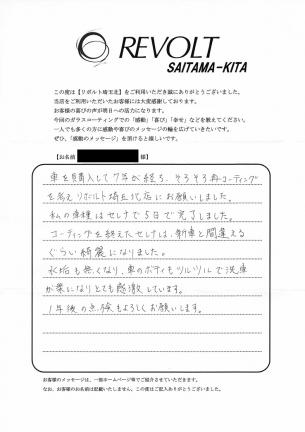 REVOLT
SAITAMA-KITA
この度は【リボルト埼玉北】をご利用いただき誠にありがとうございました。
当店をご利用いただいたお客様には大変感謝しております。
お客様の喜びの声が明日への活力になります。
今回のガラスコーティングでの「感動」「喜び」「幸せ」などを教えてください。
一人でも多くの方に感動や喜びのメッセージの輪を広げていきたいです。
ぜひ、「感動のメッセージ」を頂けると嬉しいです。
【お名前
様】
車を購入して7年が経ち、そろそろ再コーティング
を考えリボルト埼玉北店にお願いしました。
私の車種はセレナで5日で完了しました。
コーティングを終えたセレナは、新車と間違える
ぐらい綺麗になりました。
水垢も無くなり、車のボディもツルツルで洗車
が楽になりとても感激しています。
1年後の点検もよろしくお願いします。
お客様のメッセージは、一部ホームページ等でご紹介させていただきます。
なお、お客様のお名前は記載しません。この度はご記入ありがとうございました。